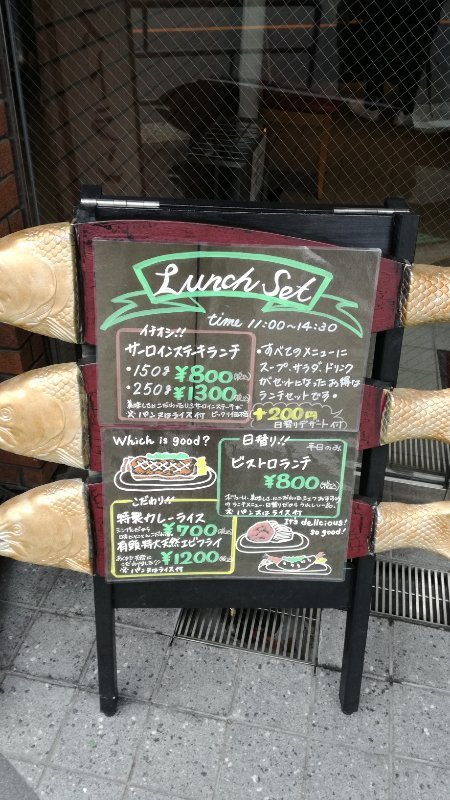 Lunch Set
time 11:00~14:30
イチオシ!!
サーロインステーキランチ
・150g ¥800(税込)
・250g ¥1300(税込)
※パンorライス付
・すべてのメニューに
スープ、サラダ、ドリンク
がセットになったお得な
ランチセットです。
+200円
日替りデザート付
Which is good?
日替り!! 平日のみ
ビストロランチ
¥800(税込)
※パンorライス付
こだわり!!
特製カレーライス
¥700(税込)
有頭特大天然エビフライ
¥1200(税込)
※パンorライス付
It's delicious!
so good!